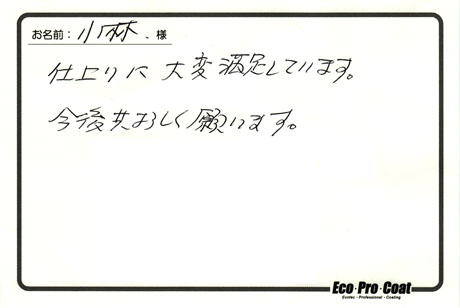 お名前：小林、様
仕上りに大変満足しています。
今後共よろしく願います。
Eco・Pro・Coat
Ecotec・Professional・Coating